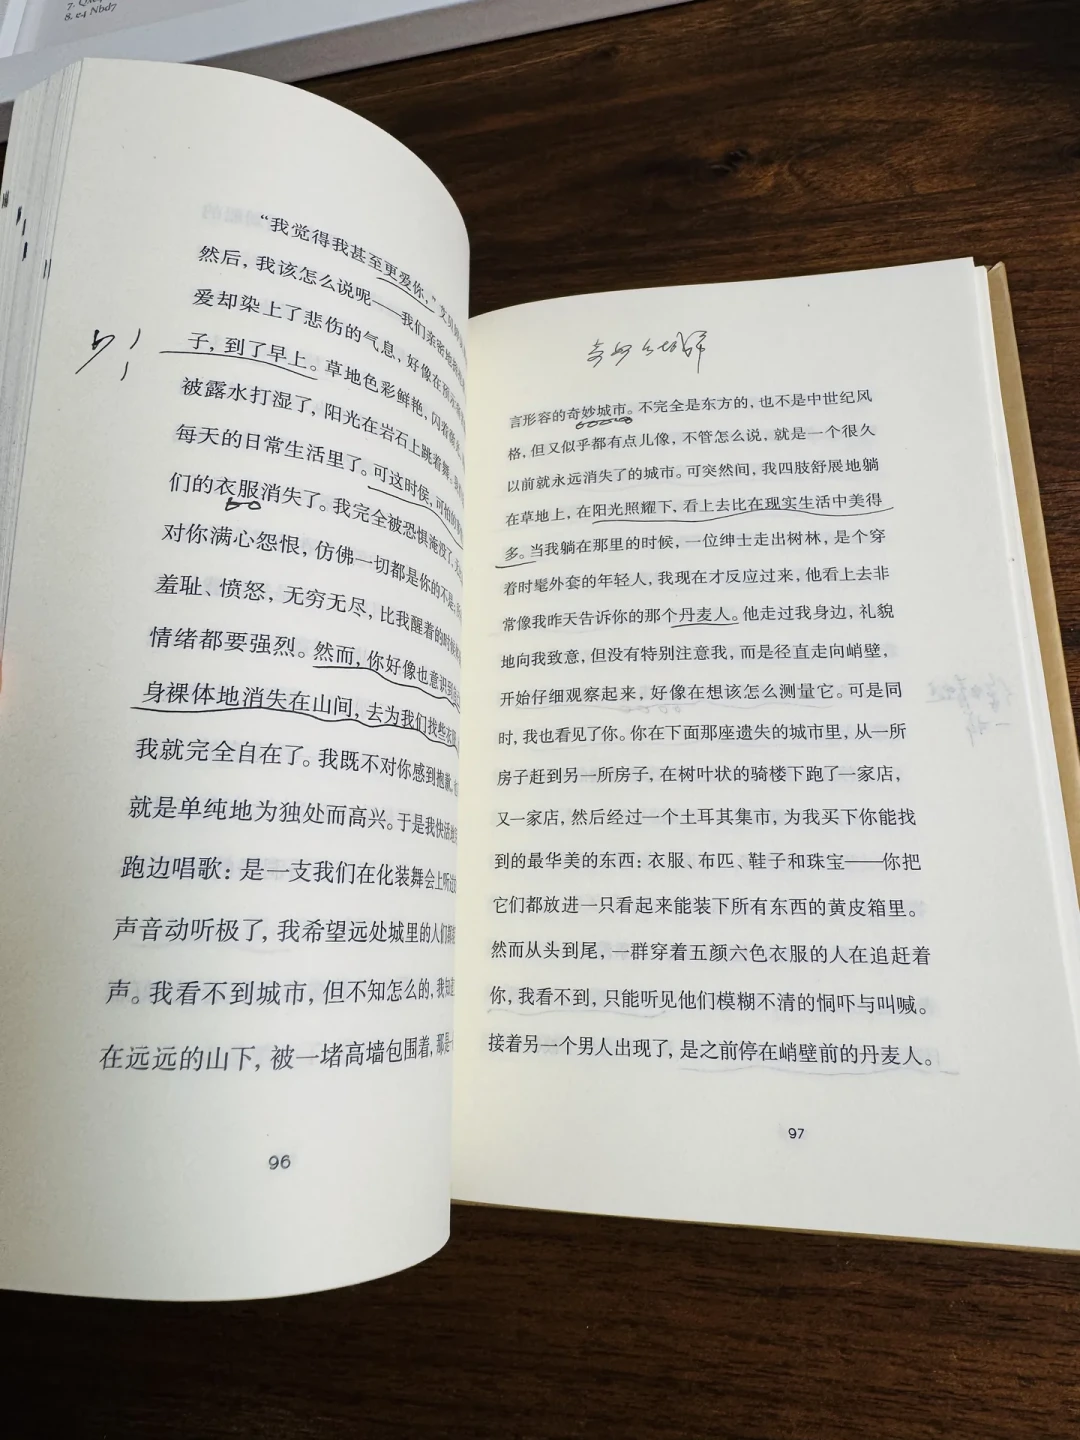 8. e4 Nbd7
“我觉得我甚至更爱你，”艾贝
然后，我该怎么说呢——我们亲密地
爱却染上了悲伤的气息，好像在
子，到了早上。草地色彩鲜艳、闪着
被露水打湿了，阳光在岩石上跳着舞。
每天的日常生活里了。可这时候，可怕的
们的衣服消失了。我完全被恐惧淹没了，
对你满心怨恨，仿佛一切都是你的不是；
羞耻、愤怒，无穷无尽，比我醒着的时候
情绪都要强烈。然而，你好像也意识到
身裸体地消失在山间，去为我们找些衣服
我就完全自在了。我既不对你感到抱歉，
就是单纯地为独处而高兴。于是我快活地
跑边唱歌：是一支我们在化装舞会上听过
声音动听极了，我希望远处城里的人们都
声。我看不到城市，但不知怎么的，我知道
在远远的山下，被一堵高墙包围着，那是一
96
言形容的奇妙城市。不完全是东方的，也不是中世纪风
格，但又似乎都有点儿像，不管怎么说，就是一个很久
以前就永远消失了的城市。可突然间，我四肢舒展地躺
在草地上，在阳光照耀下，看上去比在现实生活中美得
多。当我躺在那里的时候，一位绅士走出树林，是个穿
着时髦外套的年轻人，我现在才反应过来，他看上去非
常像我昨天告诉你的那个丹麦人。他走过我身边，礼貌
地向我致意，但没有特别注意我，而是径直走向峭壁，
开始仔细观察起来，好像在想该怎么测量它。可是同
时，我也看见了你。你在下面那座遗失的城市里，从一所
房子赶到另一所房子，在树叶状的骑楼下跑了一家店，
又一家店，然后经过一个土耳其集市，为我买下你能找
到的最华美的东西：衣服、布匹、鞋子和珠宝——你把
它们都放进一只看起来能装下所有东西的黄皮箱里。
然而从头到尾，一群穿着五颜六色衣服的人在追赶着
你，我看不到，只能听见他们模糊不清的恫吓与叫喊。
接着另一个男人出现了，是之前停在峭壁前的丹麦人。
97